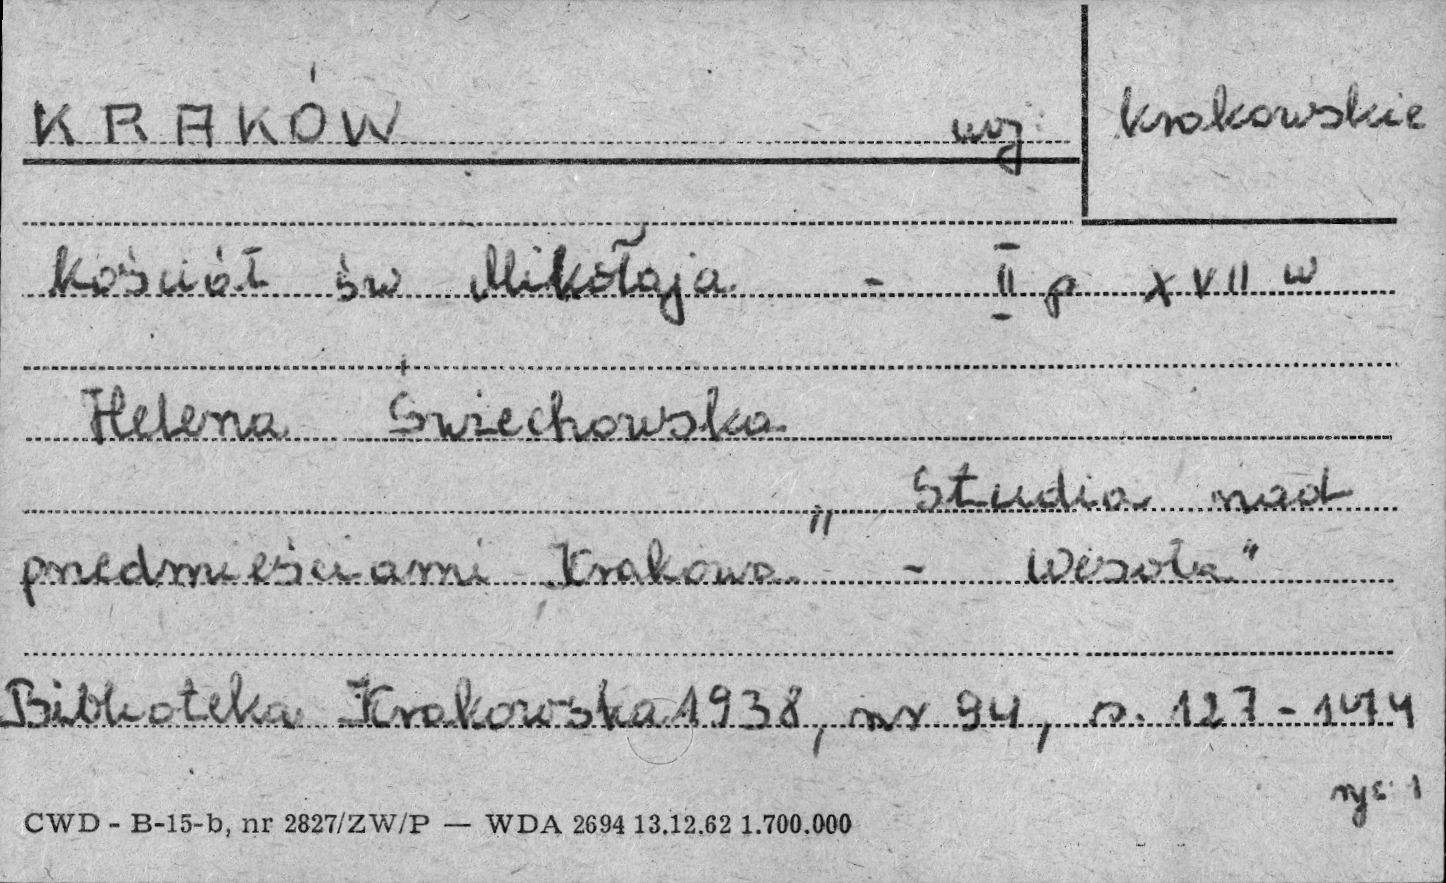 KRAKÓW woj: krakowskie
kościół św Mikołaja - II p XVII w
Helena Świechowska
„Studia nad
przedmieściami Krakowa - Wesoła"
Biblioteka Krakowska 1938, nr 94, s. 127-144
rys: 1
CWD - B-15-b, nr 2827/ZW/P — WDA 2694 13.12.62 1.700.000